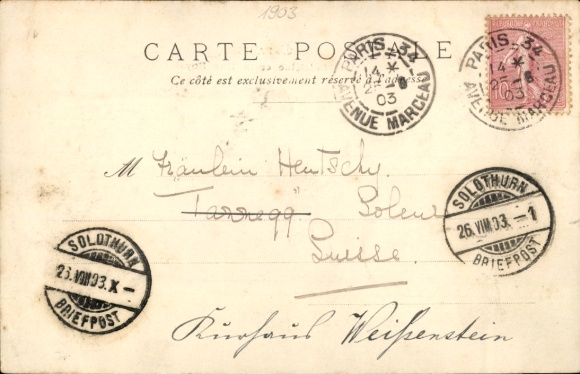 1903
CARTE POSTALE
Ce côté est exclusivement réservé à l'adresse
PARIS. 34
14 *
25 -8
03
AVENUE MARCEAU
PARIS. 34
14 *
25 -8
03
AVENUE MARCEAU
M Fräulein Hentschy.
Soleure
Suisse.
SOLOTHURN
26.VIII.03.-1
BRIEFPOST
SOLOTHURN
26.VIII.03.X-
BRIEFPOST
Kurhaus Weißenstein